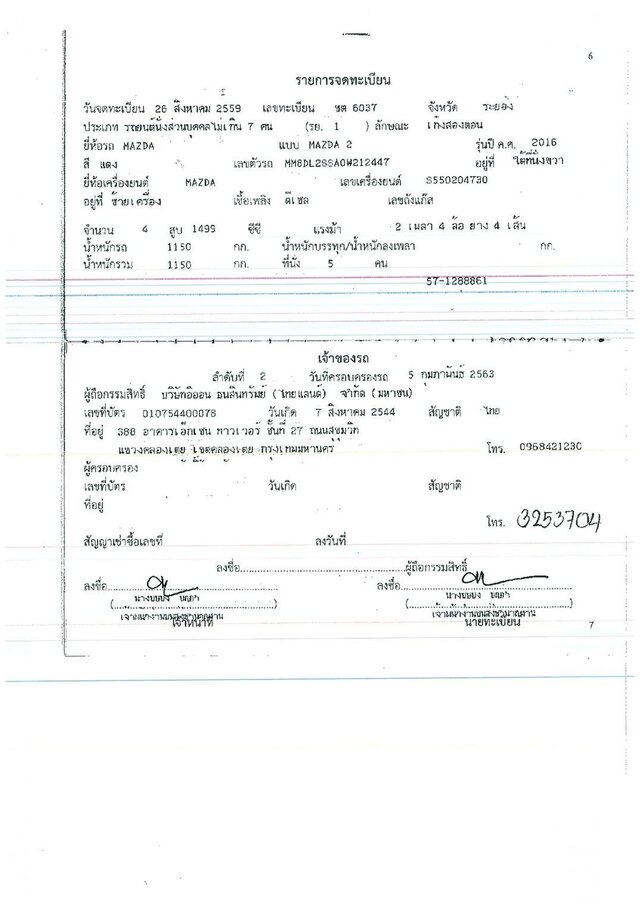 6
รายการจดทะเบียน
วันจดทะเบียน 26 สิงหาคม 2559 เลขทะเบียน ขต 6037 จังหวัด ระยอง
ประเภท รถยนต์นั่งส่วนบุคคลไม่เกิน 7 คน (รย. 1 ) ลักษณะ เก๋งสองตอน
ยี่ห้อรถ MAZDA แบบ MAZDA 2 รุ่นปี ค.ศ. 2016
สี แดง เลขตัวรถ MM8DL2SSA0W212447 อยู่ที่ ใต้ที่นั่งขวา
ยี่ห้อเครื่องยนต์ MAZDA เลขเครื่องยนต์ S550204730
อยู่ที่ ซ้ายเครื่อง เชื้อเพลิง ดีเซล เลขถังแก๊ส
จำนวน 4 สูบ 1499 ซีซี แรงม้า 2 เพลา 4 ล้อ ยาง 4 เส้น
น้ำหนักรถ 1150 กก. น้ำหนักบรรทุก/น้ำหนักลงเพลา กก.
น้ำหนักรวม 1150 กก. ที่นั่ง 5 คน
57-1288861
เจ้าของรถ
ลำดับที่ 2 วันที่ครอบครองรถ 5 กุมภาพันธ์ 2563
ผู้ถือกรรมสิทธิ์ บริษัทอิออน ธนสินทรัพย์ (ไทยแลนด์) จำกัด (มหาชน)
เลขที่บัตร 010754400078 วันเกิด 7 สิงหาคม 2544 สัญชาติ ไทย
ที่อยู่ 388 อาคารเอ็กเชน ทาวเวอร์ ชั้นที่ 27 ถนนสุขุมวิท
แขวงคลองเตย เขตคลองเตย กรุงเทพมหานคร โทร. 0968421230
ผู้ครอบครอง
เลขที่บัตร วันเกิด สัญชาติ
ที่อยู่
โทร. 3253704
สัญญาเช่าซื้อเลขที่ ลงวันที่
ลงชื่อ ผู้ถือกรรมสิทธิ์
ลงชื่อ ลงชื่อ
เจ้าพนักงานขนส่งชำนาญงาน เจ้าพนักงานขนส่งชำนาญงาน
เจ้าหน้าที่ นายทะเบียน
7